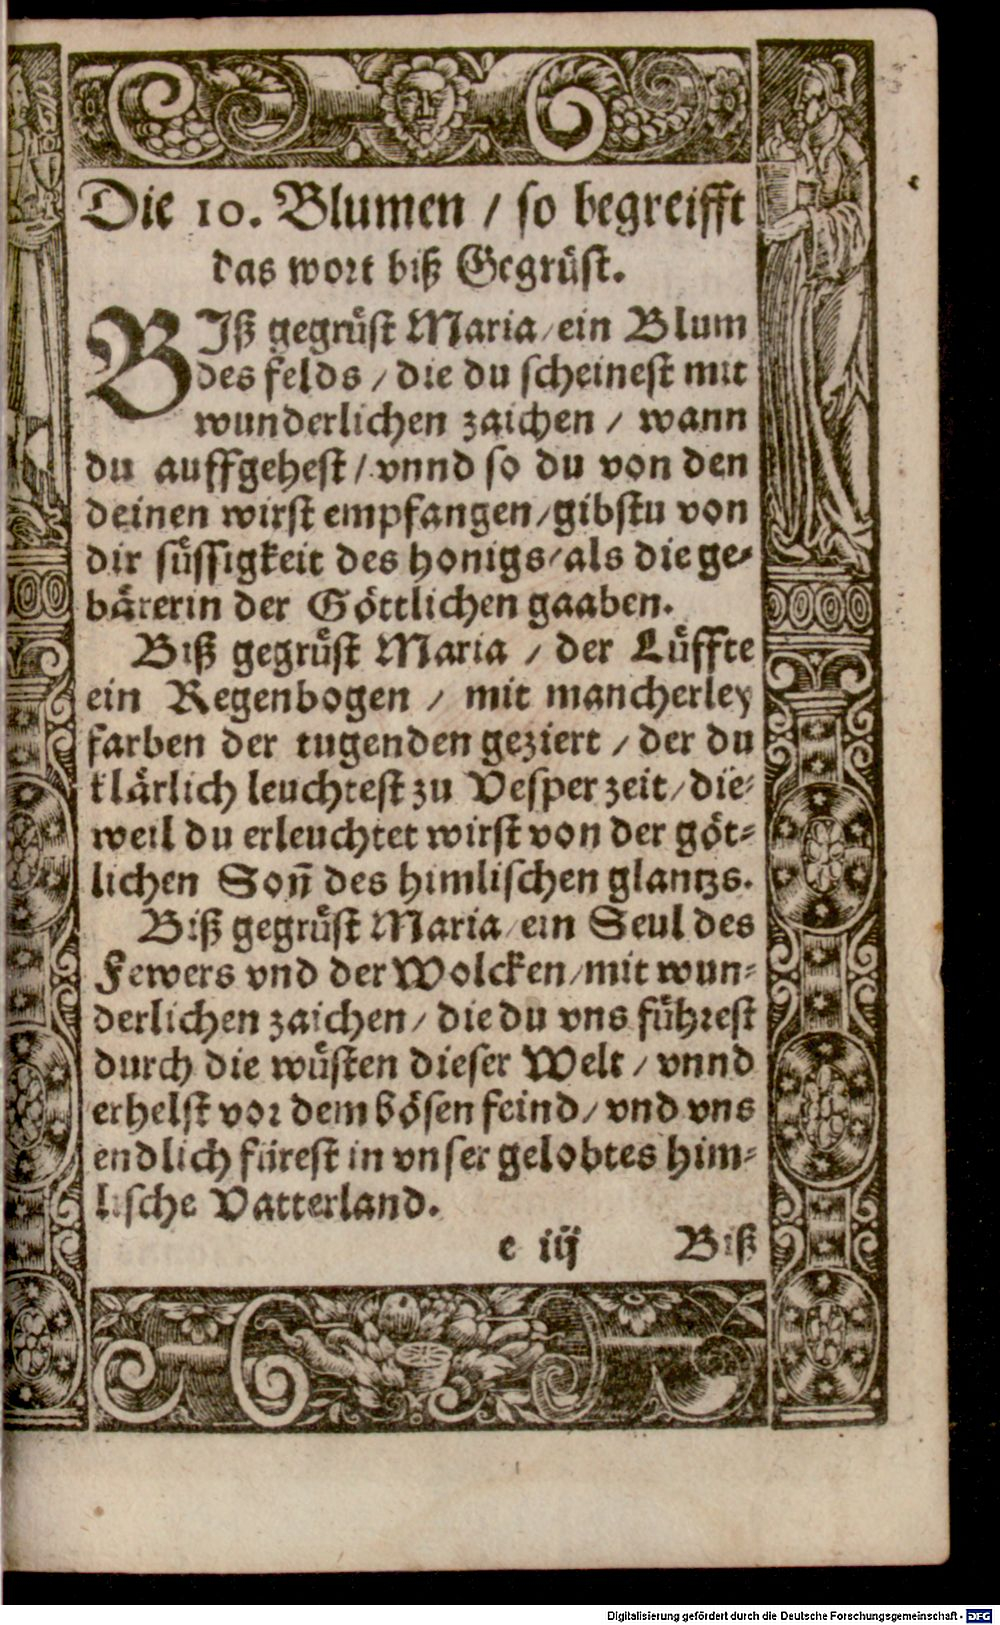 Die 10. Blumen / so begreifft
das wort biß Gegrüst.
BIß gegrüst Maria / ein Blum
des felds / die du scheinest mit
wunderlichen zaichen / wann
du auffgehest / vnnd so du von den
deinen wirst empfangen / gibstu von
dir süssigkeit des honigs / als die ge⸗
bärerin der Göttlichen gaaben.
Biß gegrüst Maria / der Lüffte
ein Regenbogen / mit mancherley
farben der tugenden geziert / der du
klärlich leuchtest zu Vesper zeit / die⸗
weil du erleuchtet wirst von der göt⸗
lichen Son̄ des himlischen glantzs.
Biß gegrüst Maria / ein Seul des
Fewers vnd der Wolcken / mit wun⸗
derlichen zaichen / die du vns führest
durch die wüsten dieser Welt / vnnd
erhelst vor dem bösen feind / vnd vns
endlich fürest in vnser gelobtes him⸗
lische Vatterland.
e iij Biß
Digitalisierung gefördert durch die Deutsche Forschungsgemeinschaft - DFG